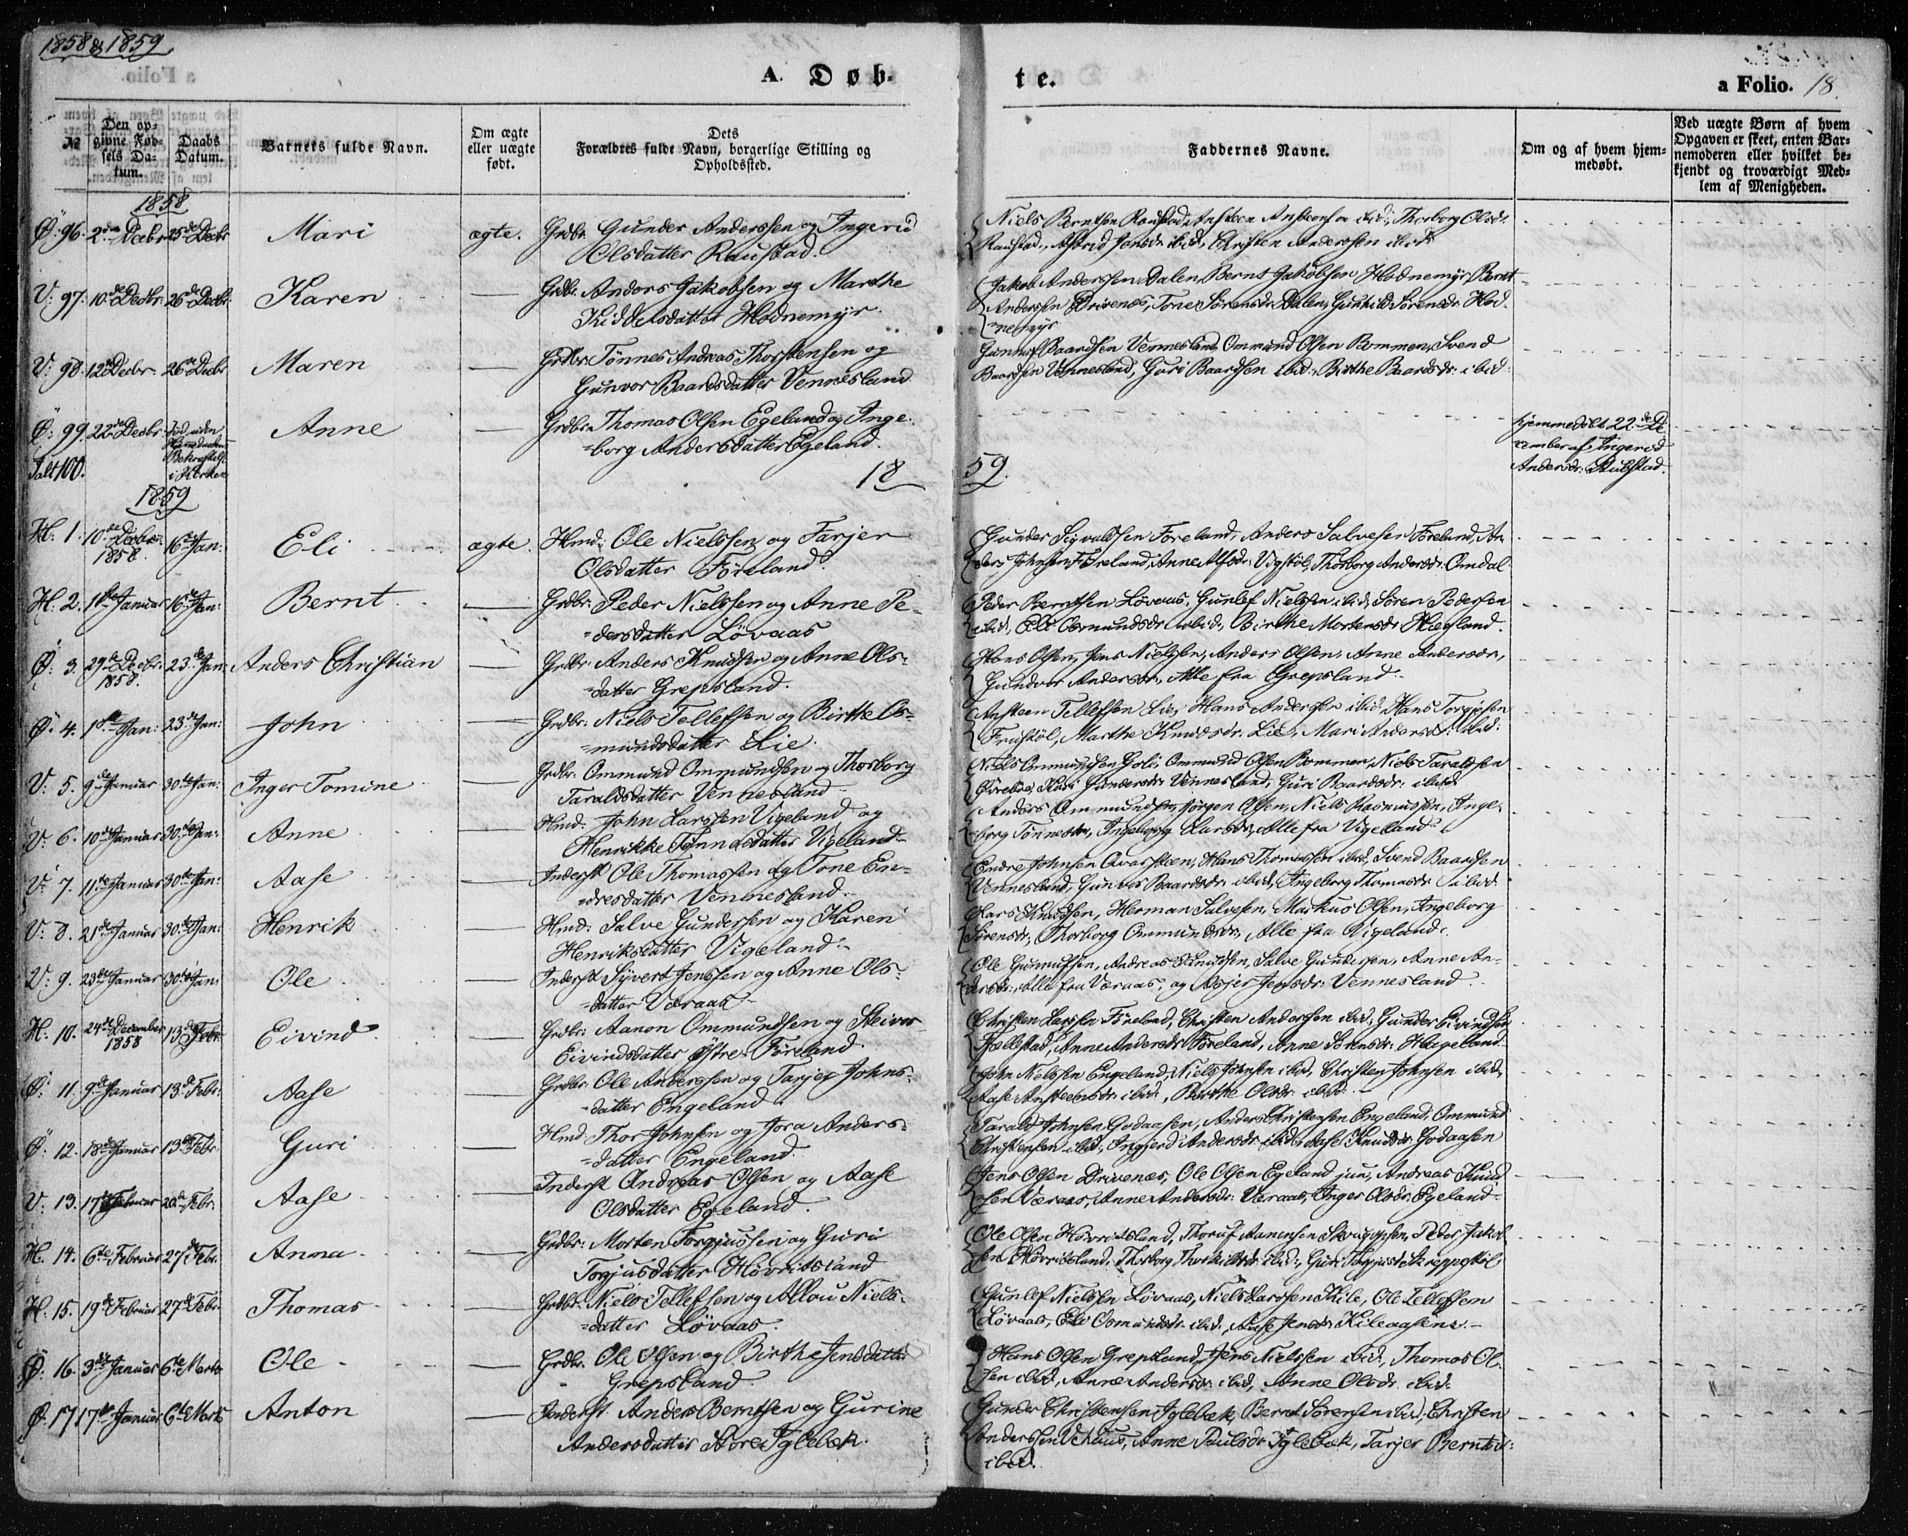 1858 & 1859
A. Døb-
te.
a Folio. 18.
№
Den opgivne Fødsels Datum.
Daabs Datum.
Barnets fulde Navn.
Om ægte eller uægte født.
Dets Forældres fulde Navn, borgerlige Stilling og Opholdssted.
Faddernes Navne.
Om og af hvem hjemmedøbt.
Ved uægte Børn af hvem Opgaven er skeet, enten Barnemoderen eller hvilket bekjendt og troværdigt Medlem af Menigheden.
1858
Ø: 96. 2den Decbr 25de Decbr Mari ægte. Grdbr. Gunder Anderssen og Ingerid
Olsdatter Raustad.
Niels Berntsen Raustad, Ansteen Ansteensen ibid, Thorborg Olsdr
Raustad, Astrid Jensdr ibid, Christen Anderssen ibid
V: 97. 10de Decbr. 26de Decbr. Karen — Grdbr. Anders Jakobsen og Marthe
Kiddelsdatter Hodnemyr.
Jakob Anderssen Dalen, Bernt Jakobsen Hodnemyr, Bernt
Anderssen Drivenes, Tone Sørensdr Dalen, Gunhild Sørensdr Hod-
nemyr
V: 98. 12te Decbr. 26de Decbr Maren — Grdbr. Tønnes Andreas Thorstensen og
Gunvor Baardsdatter Vennesland
Gunnuf Baardsen Vennesland, Ommund Olsen Bommen, Svend
Baardsen Vennesland, Guri Baardsen ibid, Birthe Baardsdr ibid:
Ø: 99. 22de Decbr Død uden
Anne Grdbr. Thomas Olsen Egeland og Inge-
=borg Andersdatter Egeland.
i Kirken
Hjemmedøbt 22de De-
cember af Ingerid
Andersdr.
Ialt 100.
18 59.
1859
H. 1. 10de Decbr. 1858. 16de Jan: Eli ægte. Hmd: Ole Nielssen og Tarjer
Olsdatter Føreland.
Gunder Sigvaldsen Føreland, Anders Salvesen Føreland, An-
ders Johnsen Føreland, Anne Alfsdr. Vigstøl, Thorborg Andersdr. Omdal
H. 2. 1ste Januar 16de Jan: Bernt — Grdbr: Peder Nielssen og Anne Pe-
=dersdatter Løvaas
Peder Berntsen Løvaas, Gunlef Nielssen ibid, Søren Pedersen
ibid, Eli Osmundsdr ibid, Birthe Mortensdr Hægland.
Ø: 3. 29de Decbr. 1858. 23de Jan: Anders Christian — Grdbr: Anders Knudsen og Anne Ols-
=datter Grepsland.
Hans Olsen, Jens Nielssen, Anders Olsen, Anne Andersdr,
Gundvor Andersdr, Alle fra Grepsland.
Ø. 4. 1ste Jan: 23de Jan: John — Grdbr: Niels Tellefsen og Birthe Os-
=mundsdatter Lie.
Ansteen Tellefsen Lie, Hans Anderssen ibid, Hans Torgjersen
Frustøl, Marthe Knudsdr. Lie, Mari Andersdr. ibid:
V: 5. 9de Januar 30te Jan: Inger Tomine — Grdbr: Ommund Ommundsen og Thorborg
Taraldsdatter Vennesland
Niels Ommundsen Homme, Ommund Olsen Bommen, Niels Taraldsen
Kari Gundersdr Vennesland, Guri Baardsdr: ibid
V. 6. 10de Januar 30te Jan: Anne — Hmd: John Larssen Vigeland og
Henrikke Tønnesdatter Vigeland
Anders Ommundsen, Jørgen Olsen, Niels Rasmussen, Inge-
borg Tønnesdr, Ingeborg Larsdr, Alle fra Vigeland
V: 7. 11te Januar 30te Jan: Aase — Inderst Ole Thomassen og Tone En-
=dresdatter Vennesland
Endre Johnsen Qvarsteen, Hans Thomassen ibid, Svend Baardsen
Vennesland, Gunvor Baardsdr ibid, Ingeborg Thomasdr ibid
V: 8. 21de Januar 30te Jan: Henrik — Hmd: Salve Gundersen og Karen
Henriksdatter Vigeland
Lars Knudsen, Herman Salvesen, Markus Olsen, Ingeborg
Sørensdr, Thorborg Ommundsdr, Alle fra Vigeland.
V: 9. 23de Januar 30te Jan: Ole — Inderst Syvert Jenssen og Anne Ols-
=datter Væraas
Ole Gunnufsen, Andreas Knudsen, Salve Gundersen, Anne An-
dersdr, Alle fra Væraas, og Asjer Jensdr. Vennesland
H. 10. 24de December 1858 13de Febr. Eivind — Grdbr: Aanon Ommundsen og Steinvor
Eivindsdatter Østre Føreland.
Christen Larssen Føreland, Christen Anderssen ibid, Gunder Eivindsen
Fjellestad, Anne Andersdr Føreland, Anne Sørensdr. Hægeland
Ø: 11. 9de Januar 13de Febr. Aase — Grdbr: Ole Anderssen og Tarjer Johns-
=datter Engeland
John Nielssen Engeland, Niels Johnsen ibid, Christen Johnsen ibid,
Aase Ansteensdr ibid, Birthe Olsdr ibid.
Ø: 12. 18de Januar 13de Febr Guri — Hmd: Thor Johnsen og Jora Anders-
=datter Engeland.
Tarald Johnsen Godaasen, Anders Christensen Engeland, Ommund
Christensen ibid, Ingjerd Andersdr ibid, Aase Knudsdr Godaasen
V: 13. 17de Januar 20de Febr. Aase — Inderst Andreas Olsen og Aase
Olsdatter Egeland.
Jens Olsen Drivenes, Ole Olsen Egeland jun, Andreas Knud-
sen Væraas, Anne Andersdr Væraas, Inger Olsdr. Egeland
H. 14. 6te Februar 27de Febr. Anna — Grdbr: Morten Torgjussen og Guri
Torjusdatter Høvritsland
Ole Olsen Høvritsland, Thoruf Aanensen, Peder Jakob-
sen Høvritsland, Thorborg ibid, Guri Torjusdr Skreppestøl
H. 15. 19de Februar 27de Febr. Thomas — Grdbr: Niels Tellefsen og Allou Niels-
=datter Løvaas.
Gunlef Nielssen Løvaas, Niels Larssen Kile, Ole Tellefsen
Løvaas, Eli Osmundsdr ibid, Aase Jensdr Kileaasen
Ø. 16. 3die Januar 6te Marts Ole — Grdbr: Ole Olsen og Birthe Jensdatter
Grepsland
Hans Olsen Grepsland, Jens Nielssen ibid, Thomas Ol-
sen ibid, Anne Andersdr ibid, Anne Olsdr. ibid
Ø 17. 17de Januar 6te Marts Anton — Inderst Anders Berntsen og Gurine
Andersdatter Store Iglebæk
Gunder Christensen Iglebæk, Bernt Sørensen ibid, Christen
Anderssen Vehuus, Anne Paulsdr Iglebæk, Tarjer Berntsdr:
ibid.